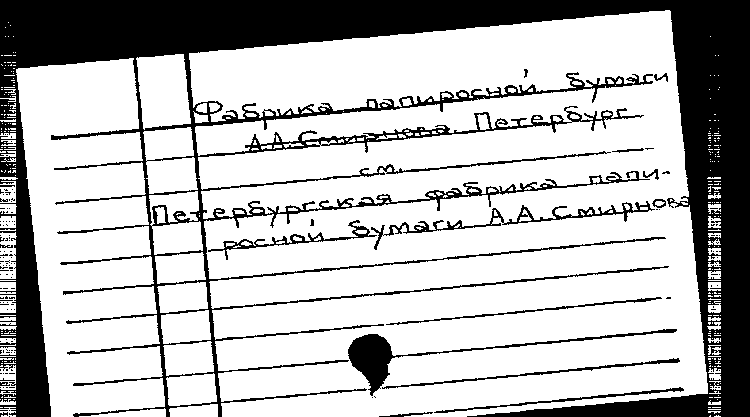 Фабрика папиросной бумаги
А.А.Смирнова. Петербург
см.
Петербургская фабрика папи-
росной бумаги А.А.Смирнова